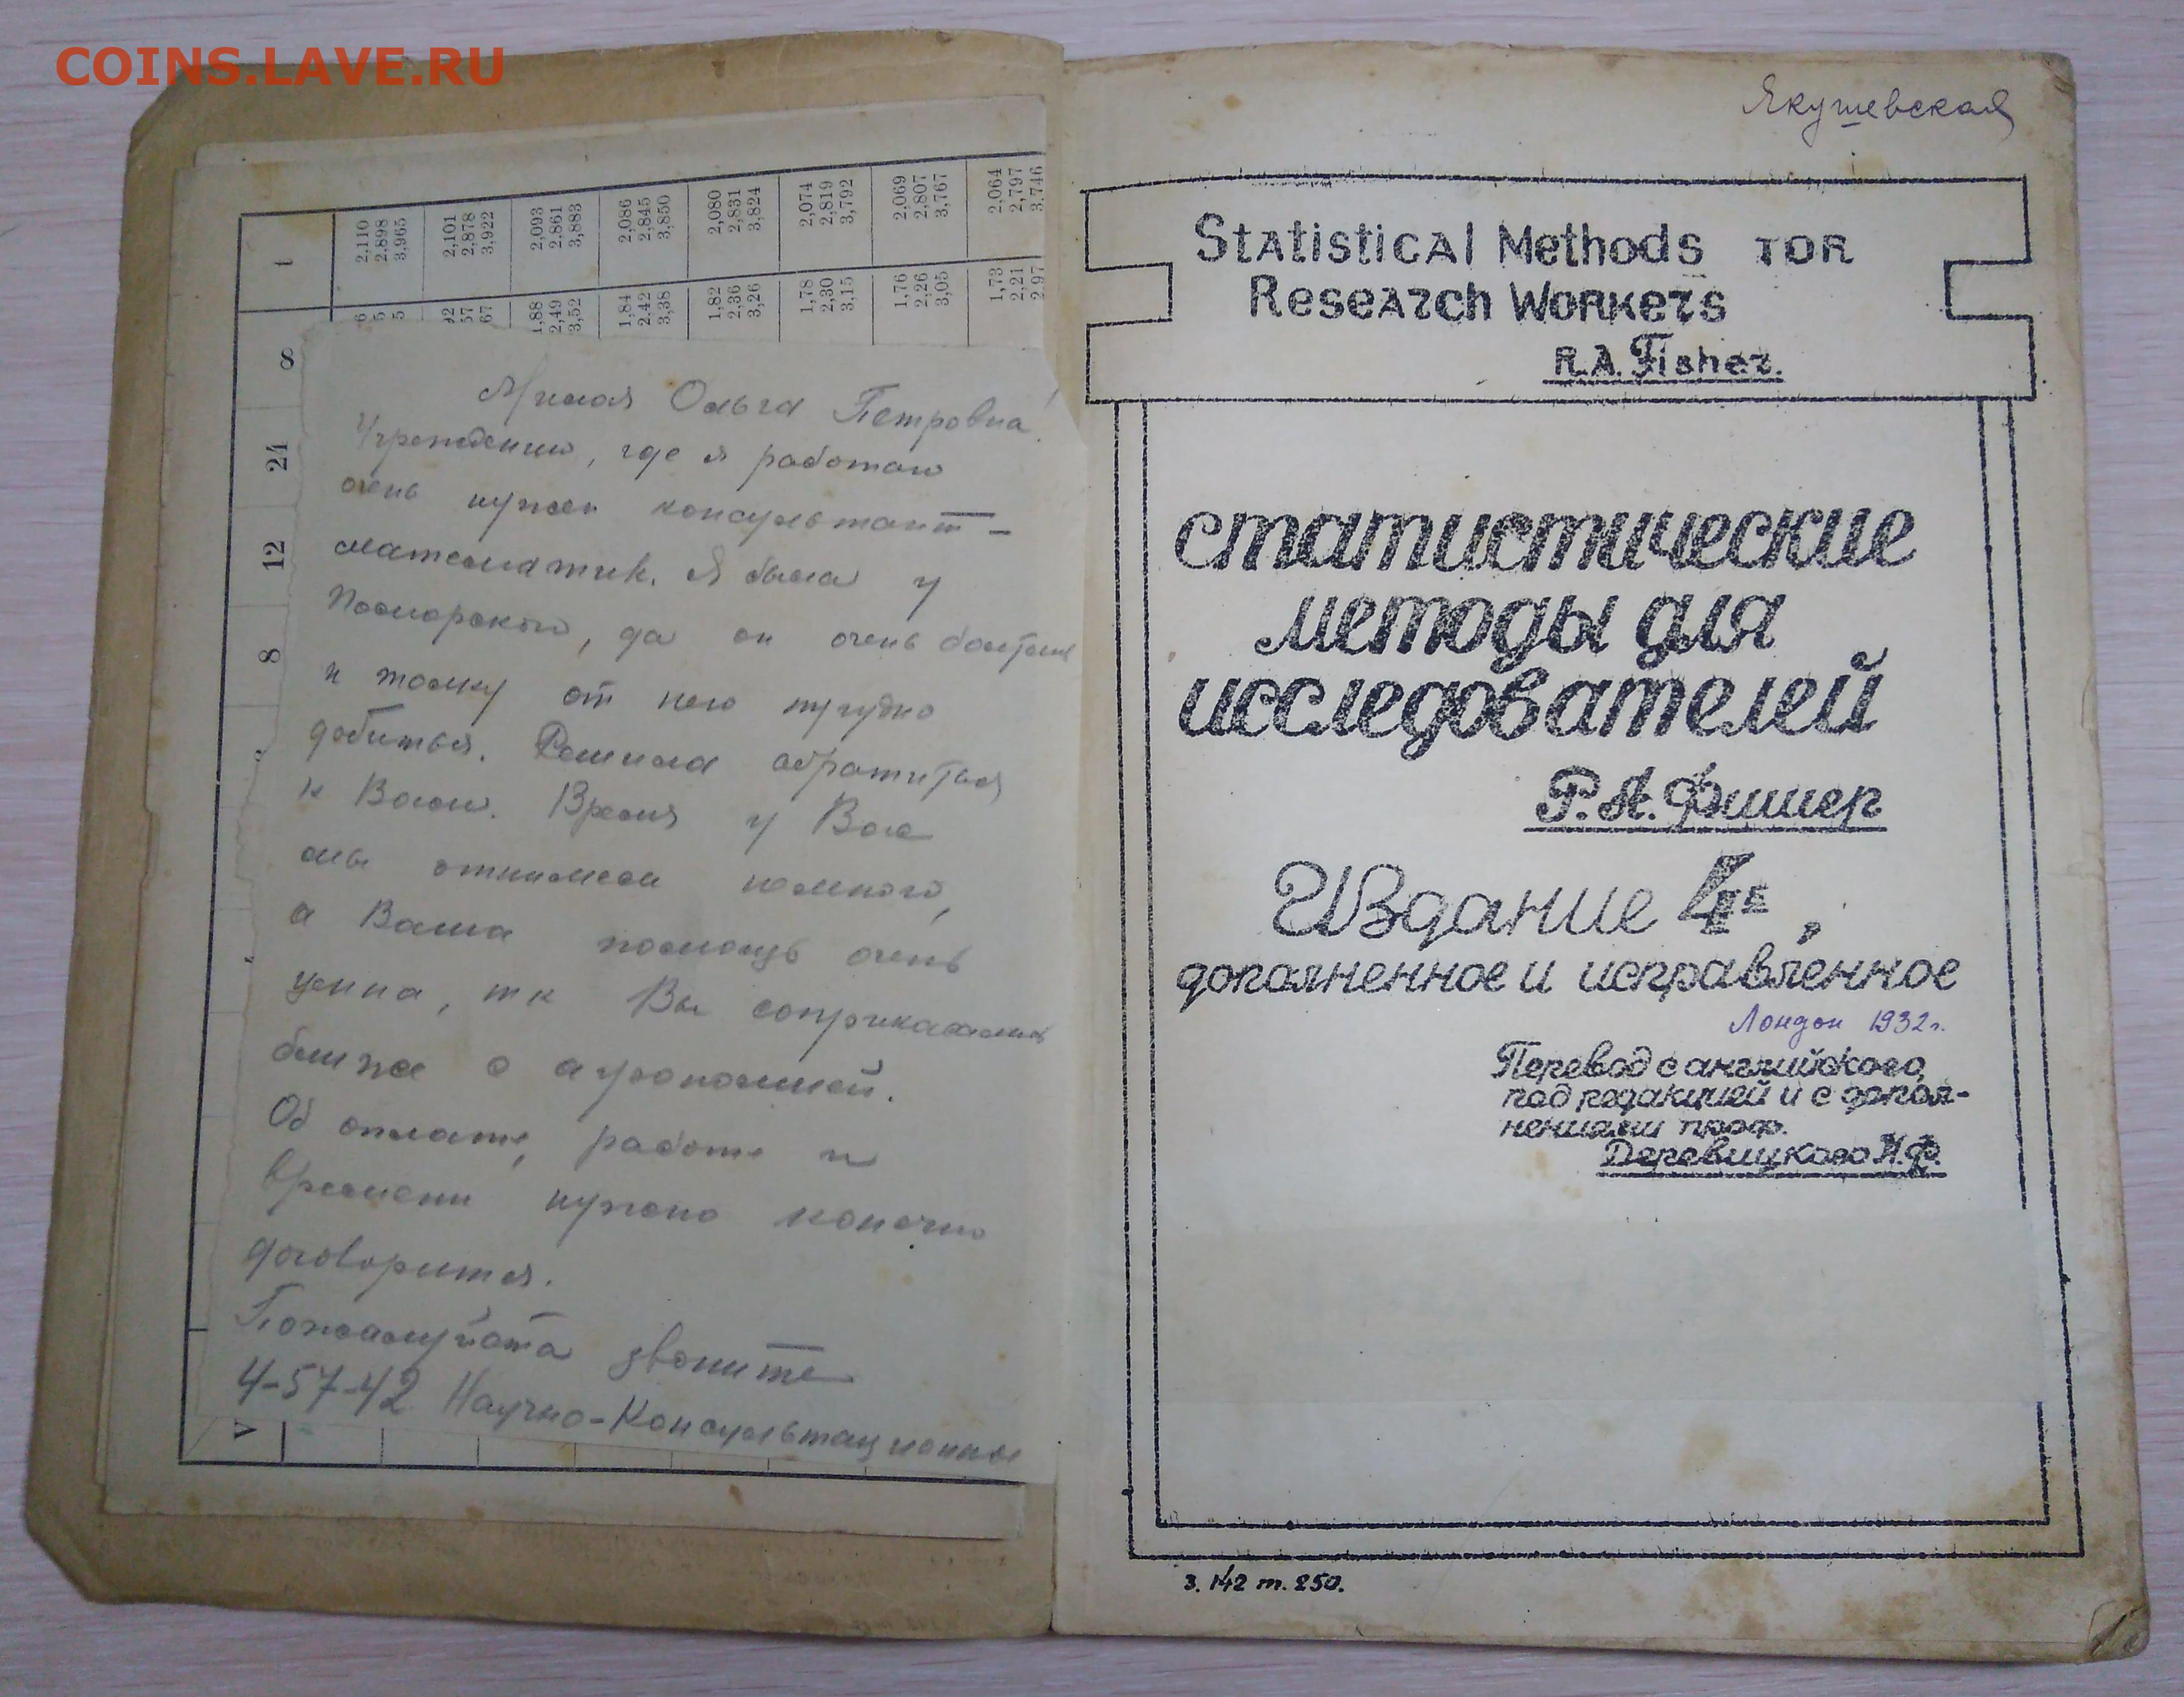 COINS.LAVE.RU
t
2,110 2,101 2,093 2,086 2,080 2,074 2,069 2,064
2,898 2,878 2,861 2,845 2,831 2,819 2,807 2,797
3,965 3,922 3,883 3,850 3,824 3,792 3,767 3,746
6 92 1,88 1,84 1,82 1,78 1,76 1,73
5 57 2,49 2,42 2,36 2,30 2,26 2,21
5 67 3,52 3,38 3,26 3,15 3,05 2,97
8
24
12
8
V
Милая Ольга Петровна!
Учреждению, где я работаю
очень нужен консультант –
математик. Я была у
Поморского, да он очень
и толку от него трудно
добиться. Решила обратиться
к Вам. Время у Вас
мы отнимем немного,
а Ваша помощь очень
ценна, т к Вы
ближе с агрономией.
Об оплате, работе и
времени нужно конечно
договориться.
Пожалуйста звоните
4-57-42 Научно-Консультационны
Якушевская
Statistical Methods TOR
Research Workers
R.A. Fisher.
статистические
методы для
исследователей
Р.А. Фишер
Издание 4ое,
дополненное и исправленное
Лондон 1932 г.
Перевод с английского
под редакцией и с допол-
нениями проф.
Деревицкого Н.Ф.
З. 142 т. 250.